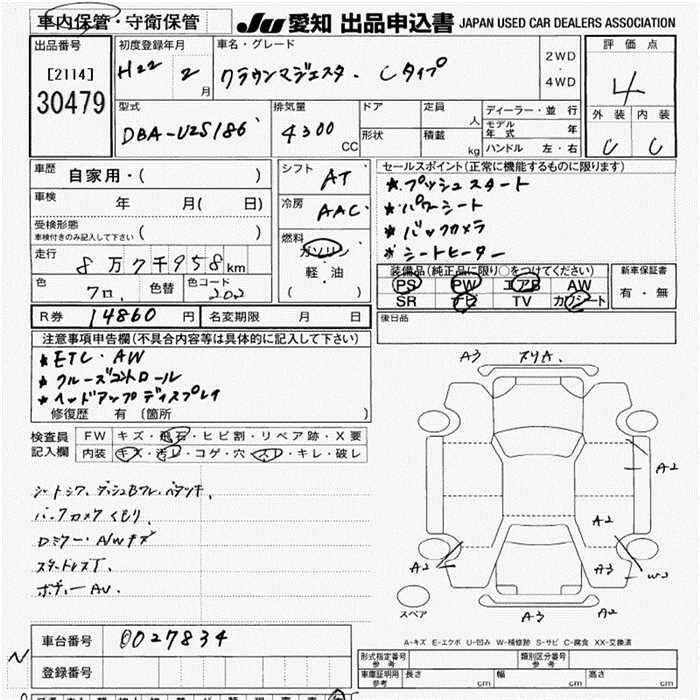 車内保管・守衛保管 JU 愛知 出品申込書 JAPAN USED CAR DEALERS ASSOCIATION
出品番号
[2114]
30479
初度登録年月
H22 2 月
車名・グレード
クラウンマジェスタ. Cタイプ
2WD
・
4WD
評価点
4
外装 内装
C C
型式
DBA-UZS186
排気量
4300 CC
ドア
形状
定員 人
積載 kg
ディーラー・並行
モデル年式 年
ハンドル 左・右
車歴 自家用・( )
車検 年 月( 日)
受検形態
車検付きのみ記入して下さい ( )
走行 8万7千958km
色 クロ. 色替 色コード 202
シフト AT
冷房 AAC
燃料 ガソリン
軽・油
( )
セールスポイント(正常に機能するものに限ります)
★プッシュスタート
★パワーシート
★バックカメラ
★シートヒーター
装備品(純正品に限り○をつけてください)
PS PW エアB AW
SR ナビ TV カワシート
新車保証書
有・無
R券 14860 円 名変期限 月 日
後日品
注意事項申告欄(不具合内容等は具体的に記入して下さい)
★ETC・AW
★クルーズコントロール
★ヘッドアップディスプレイ
修復歴 有(箇所 )
検査員
記入欄
FW キズ・飛石・ヒビ割・リペア跡・X要
内装 キズ・汚レ・コゲ・穴・スレ・キレ・破レ
シートシワ、ダッシュBフレ、ベタツキ
バックカメラくもり、
Dミラー・A/Wキズ
スタッドレスT.
ボディーAU.
A3
A2
A2
A2
A3
W2
A3
A2
スペア
A-キズ E-エクボ U-凹み W-補修跡 S-サビ C-腐食 XX-交換済
車台番号 0027834
登録番号
N
形式指定番号
参考
類別区分番号
参考
車庫証明用
参考
長さ cm 幅 cm 高さ cm